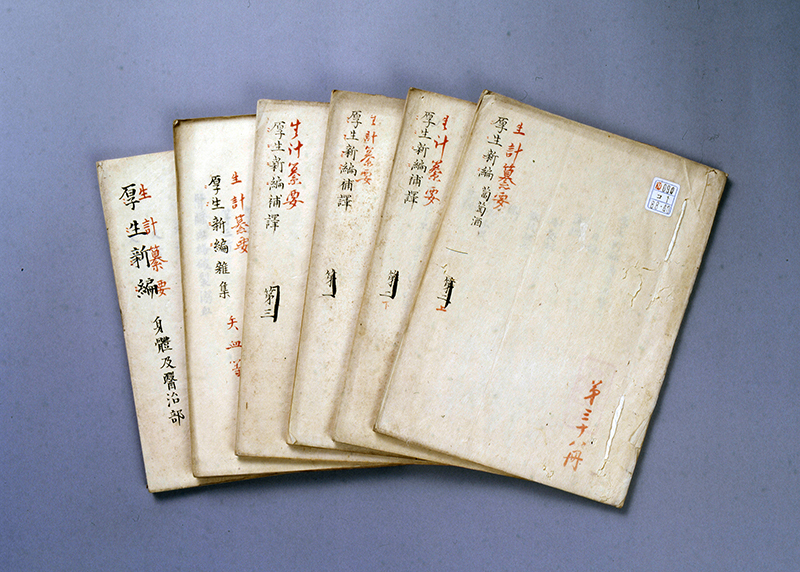 生計纂要
厚生新編 葡萄酒
第三十八冊
生計纂要
厚生新編補譯
下
生計纂要
厚生新編補譯
生計纂要
厚生新編補譯
第三
生計纂要
厚生新編雜集
生計纂要
厚生新編 身體及醫治部